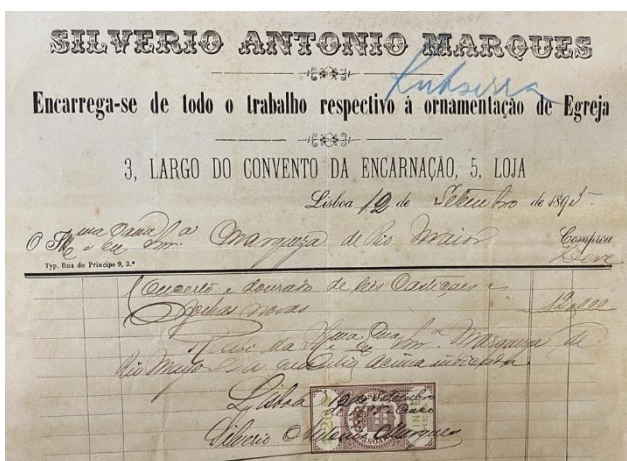 SILVERIO ANTONIO MARQUES
Encarrega-se de todo o trabalho respectivo à ornamentação de Egreja
3, LARGO DO CONVENTO DA ENCARNAÇÃO, 5, LOJA
Lisboa 12 de Setembro de 1895
Marqueza de Rio Maior Comprou
Typ. Rua do Principe 9, 3.º Deve
Concerto e dourado de seis Castiçaes e
novas 12,000
Recebi da Marqueza de
Rio Mayor a quantia acima indicada
Lisboa 12 de Setembro
Silverio Antonio Marques